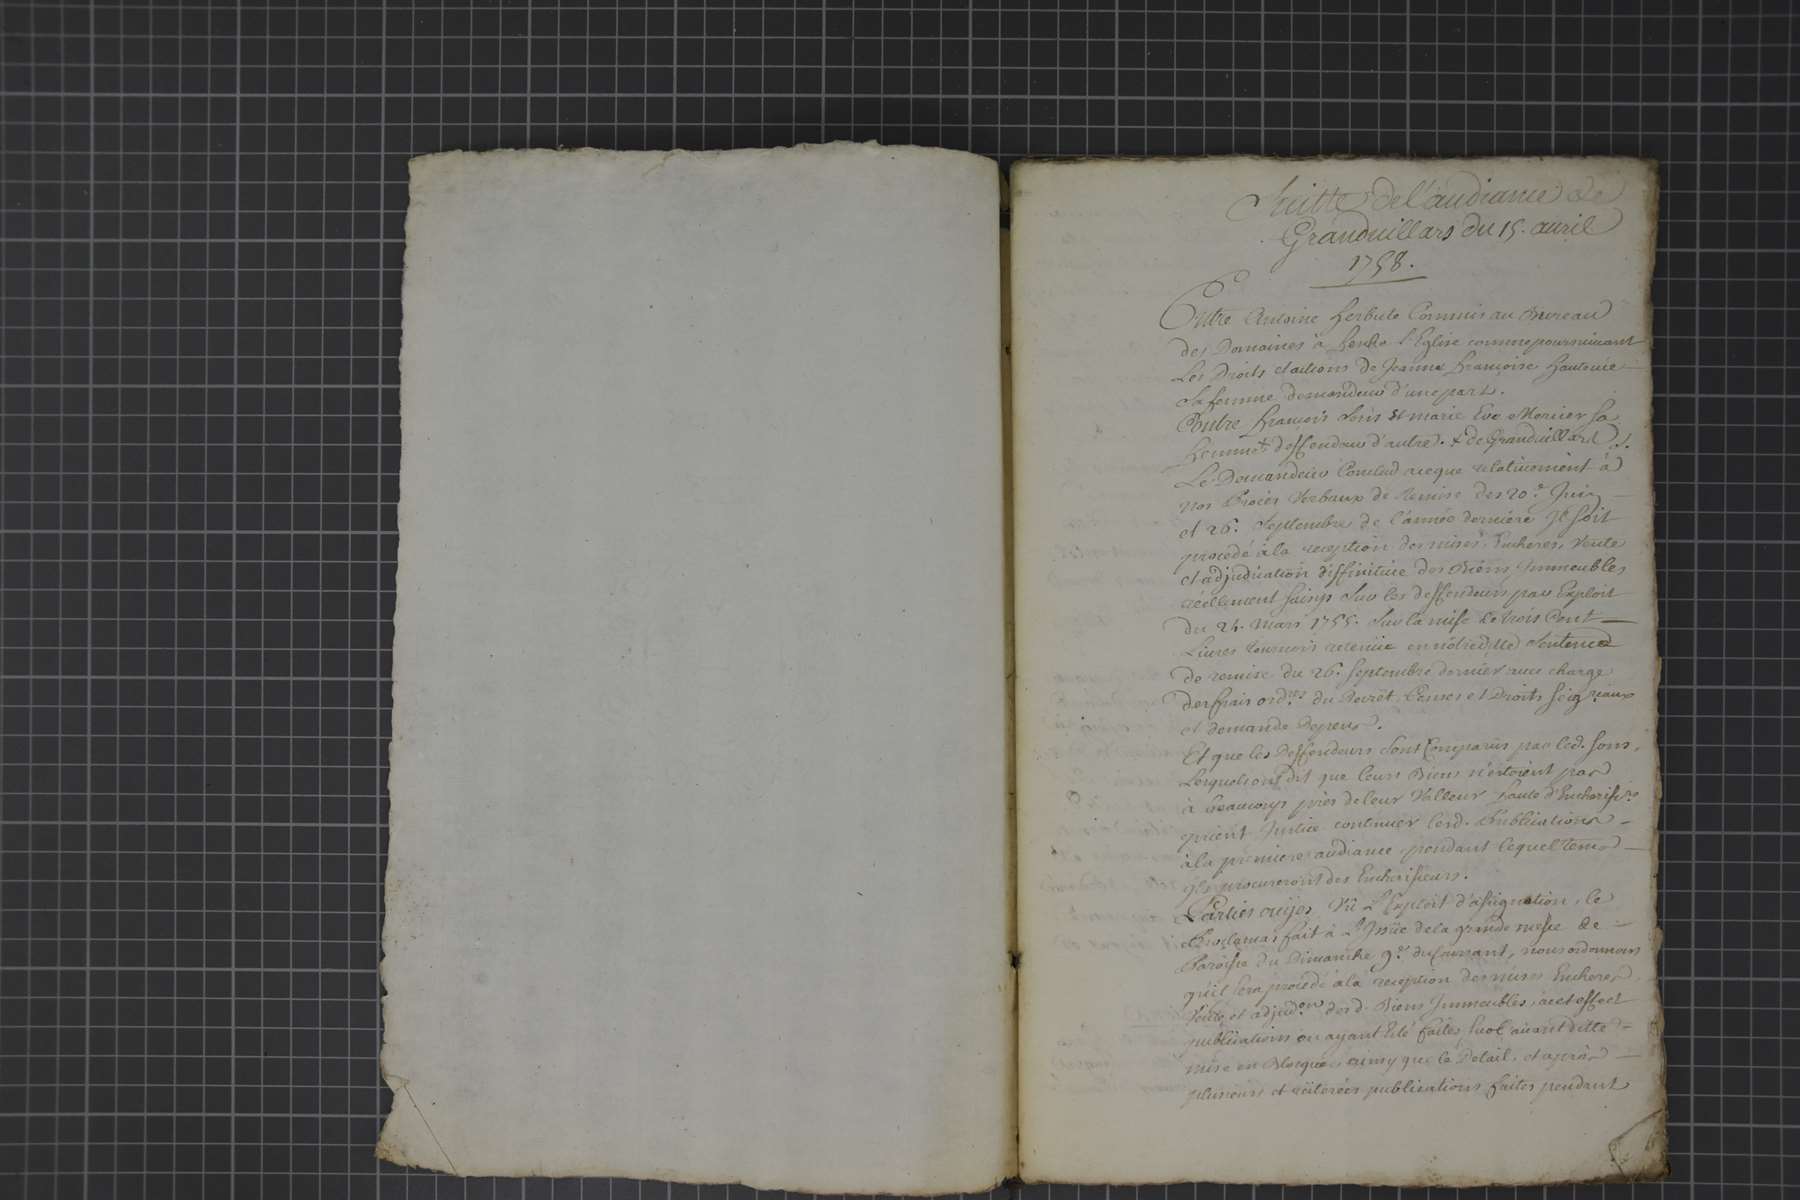 Suitte de l'audiance de
Granduillars du 15. auril
1758.
Entre Antoine herbute Commis au Bureau
des Domaines à l'Eglise comme poursuiuant
Les Droits et actions de Jeanne françoise
Sa femme demandeur d'une part.
Contre françois Et marie Eve Mercier Sa
femme + deffendeur d'autre. + de Granduillard
Le Demandeur Conclud aceque relatiuement à
Nos Procès Verbaux de Remise des 20.e Juin
et 26. Septembre de l'année dernière Il soit
procédé à la reception des mises, Encheres, Vente
et adjudication diffinitiue des Biens Immeubles
réellement Saisys Sur les deffendeurs par Exploit
du 24. Mars 1755. Sur la mise de trois Cent
Liures tournois retenüe en nôtredite Sentence
de remise du 26. Septembre dernier aux charge
des frais ord.res du Decret, Censes et Droits Seig.riaux
et demande Depens.
Et que les Deffendeurs Sont Comparus par led.
Lesquels ont dit que leurs Biens n'estoient pas
à beaucoup près de leur Valleur faute d'
prient Justice continuer lesd. Publications
à la premiere audiance, pendant lequel tems
ils procureront des Encherisseurs.
Parties ouijes, Vû L'Exploit d'assignation, le
Proclamas fait à L'Issüe de la grande messe de
Paroisse du Dimanche 9.e du Courrant, nous ordonnons
qu'il sera procédé à la reception des mises Encheres,
Vente et adjud.on desd. Biens Immeubles, a cet effect
publications en ayant Eté faites, Sur l' auant ditte
mise en Bloque, ainsy que le Detail, et après
plusieurs et réiterées publications faites pendant